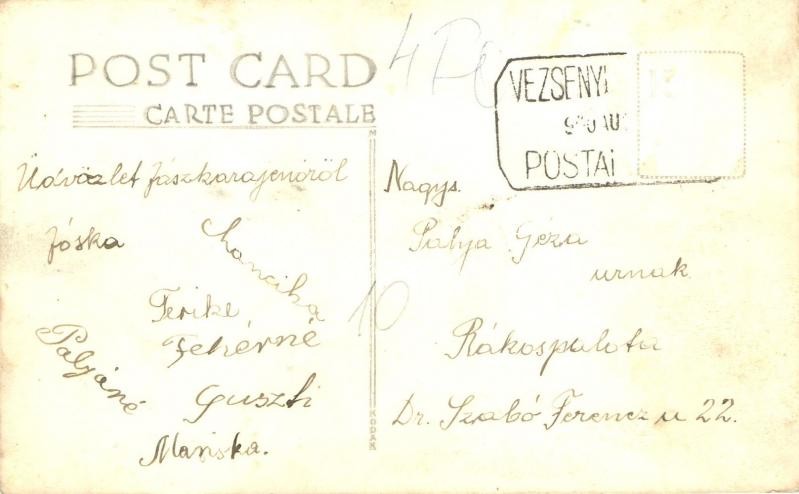 POST CARD
CARTE POSTALE
4
VEZSENYI
POSTAI
Üdvözlet Jászkarajenőről
Jóska
Mancika
Terike
Fehérné
Pályáné
Guszti
Mariska.
10
KODAK
Nagys.
Pálya Géza
urnak
Rákospalota
Dr. Szabó Ferencz u 22.